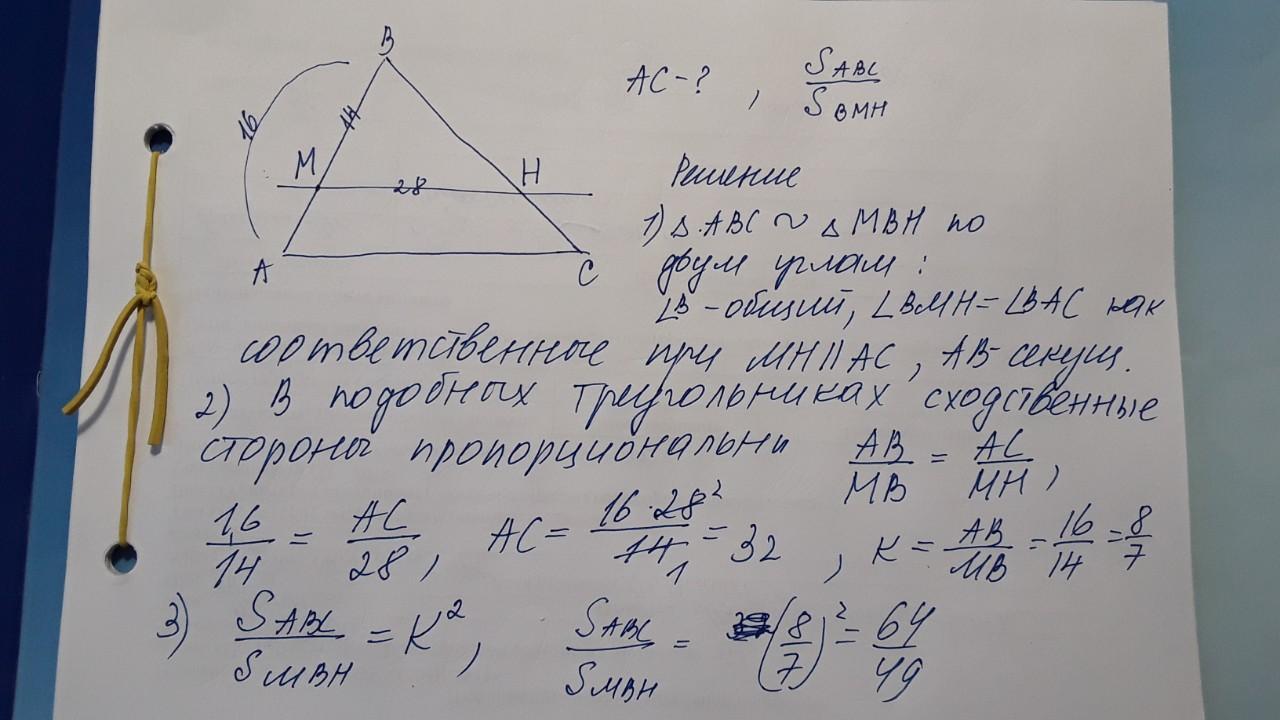 B
16
14
M
28
H
A
C
AC - ? , S ABC / S BMH
Решение
1) △ ABC ~ △ MBH по
двум углам :
∠B - общий, ∠BMH = ∠BAC как
соответственные при MH || AC , AB - секущ.
2) В подобных треугольниках сходственные
стороны пропорциональны AB/MB = AC/MH ,
16/14 = AC/28 , AC = 16 · 28 ² / 14 ₁ = 32 , K = AB/MB = 16/14 = 8/7
3) S ABC / S MBH = K² , S ABC / S MBH = (8/7)² = 64/49